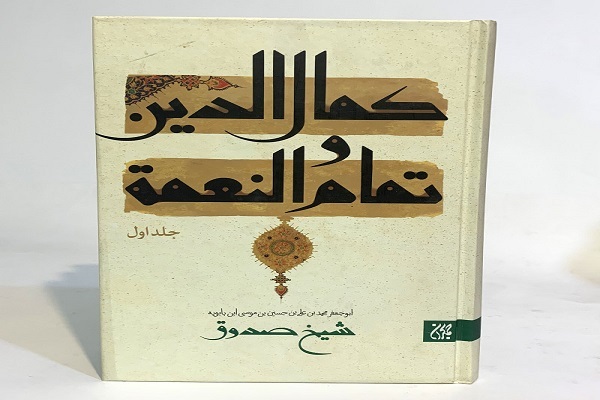 کمال الدین
و
تمام النعمة
جلد اول
ابوجعفر محمد بن علی بن حسین بن موسی ابن بابویه
شیخ صدوق